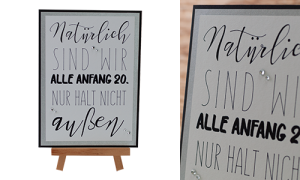 Natürlich
SIND WIR
ALLE ANFANG 20.
NUR HALT NICHT
außen.
Natürlich
SIND WIR
ALLE ANFANG 2
NUR HALT
auß